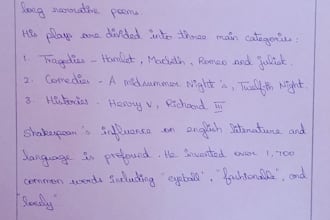 long narrative poems.
His plays are divided into three main categories:
1. Tragedies - Hamlet, Macbeth, Romeo and Juliet.
2. Comedies - A midsummer Night's, Twelfth Night.
3. Histories - Henry V, Richard III
Shakespear's influence on english literature and
language is profound. He invented over 1,700
common words including "eyeball", "fashionable", and
"lonely"